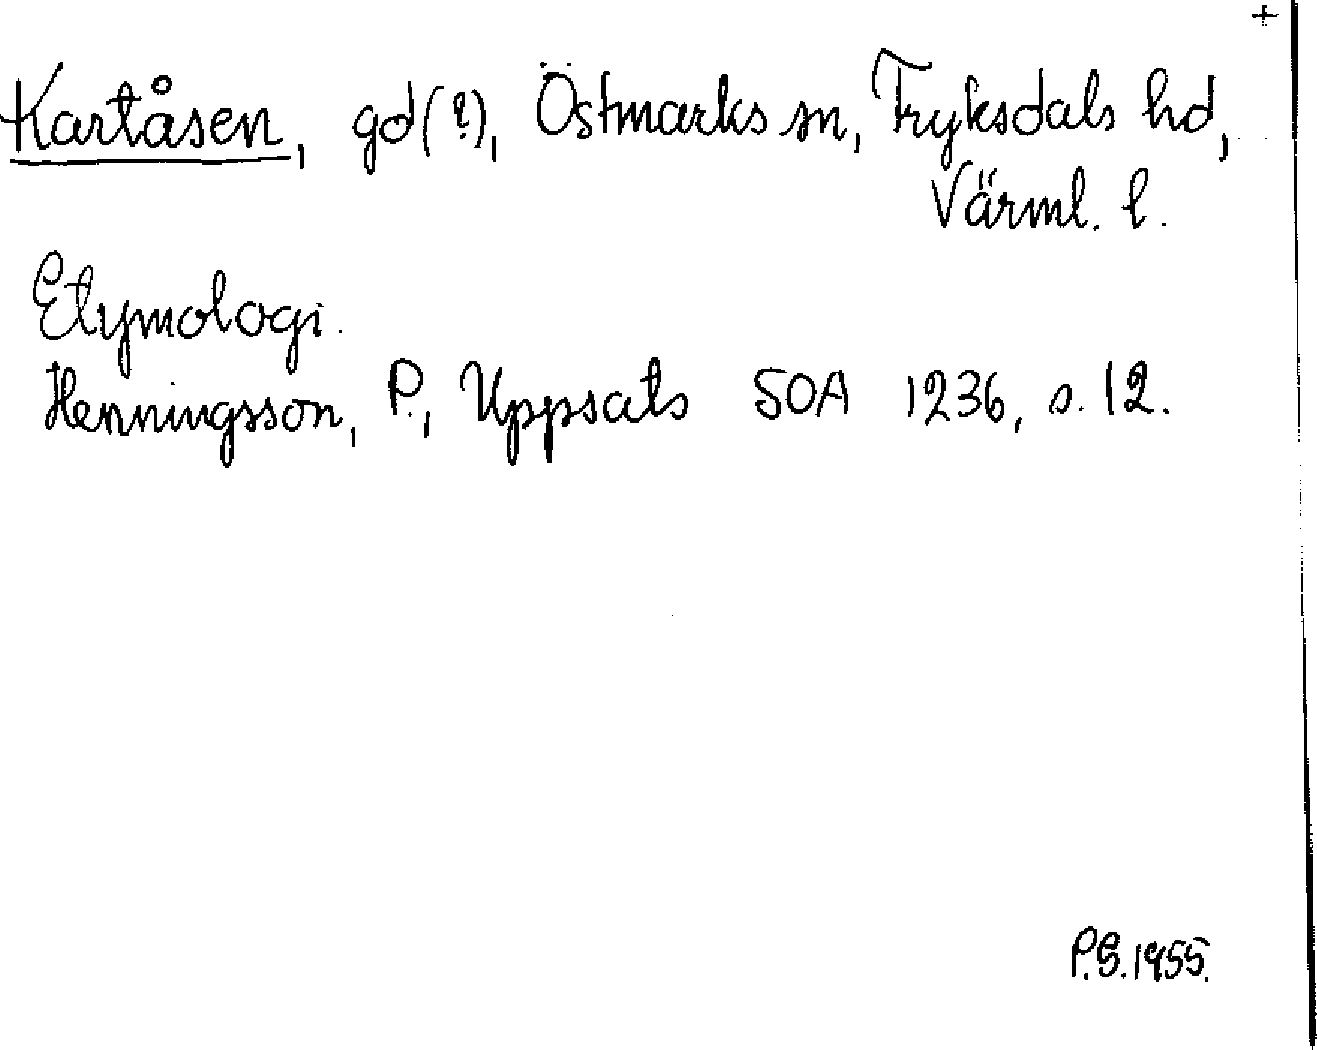 +
Kartåsen, gd(?), Östmarks sn, Fryksdals hd,
Värml. l.
Etymologi.
Henningsson, P., Uppsats SOA 1236, s. 12.
P.S. 1955.